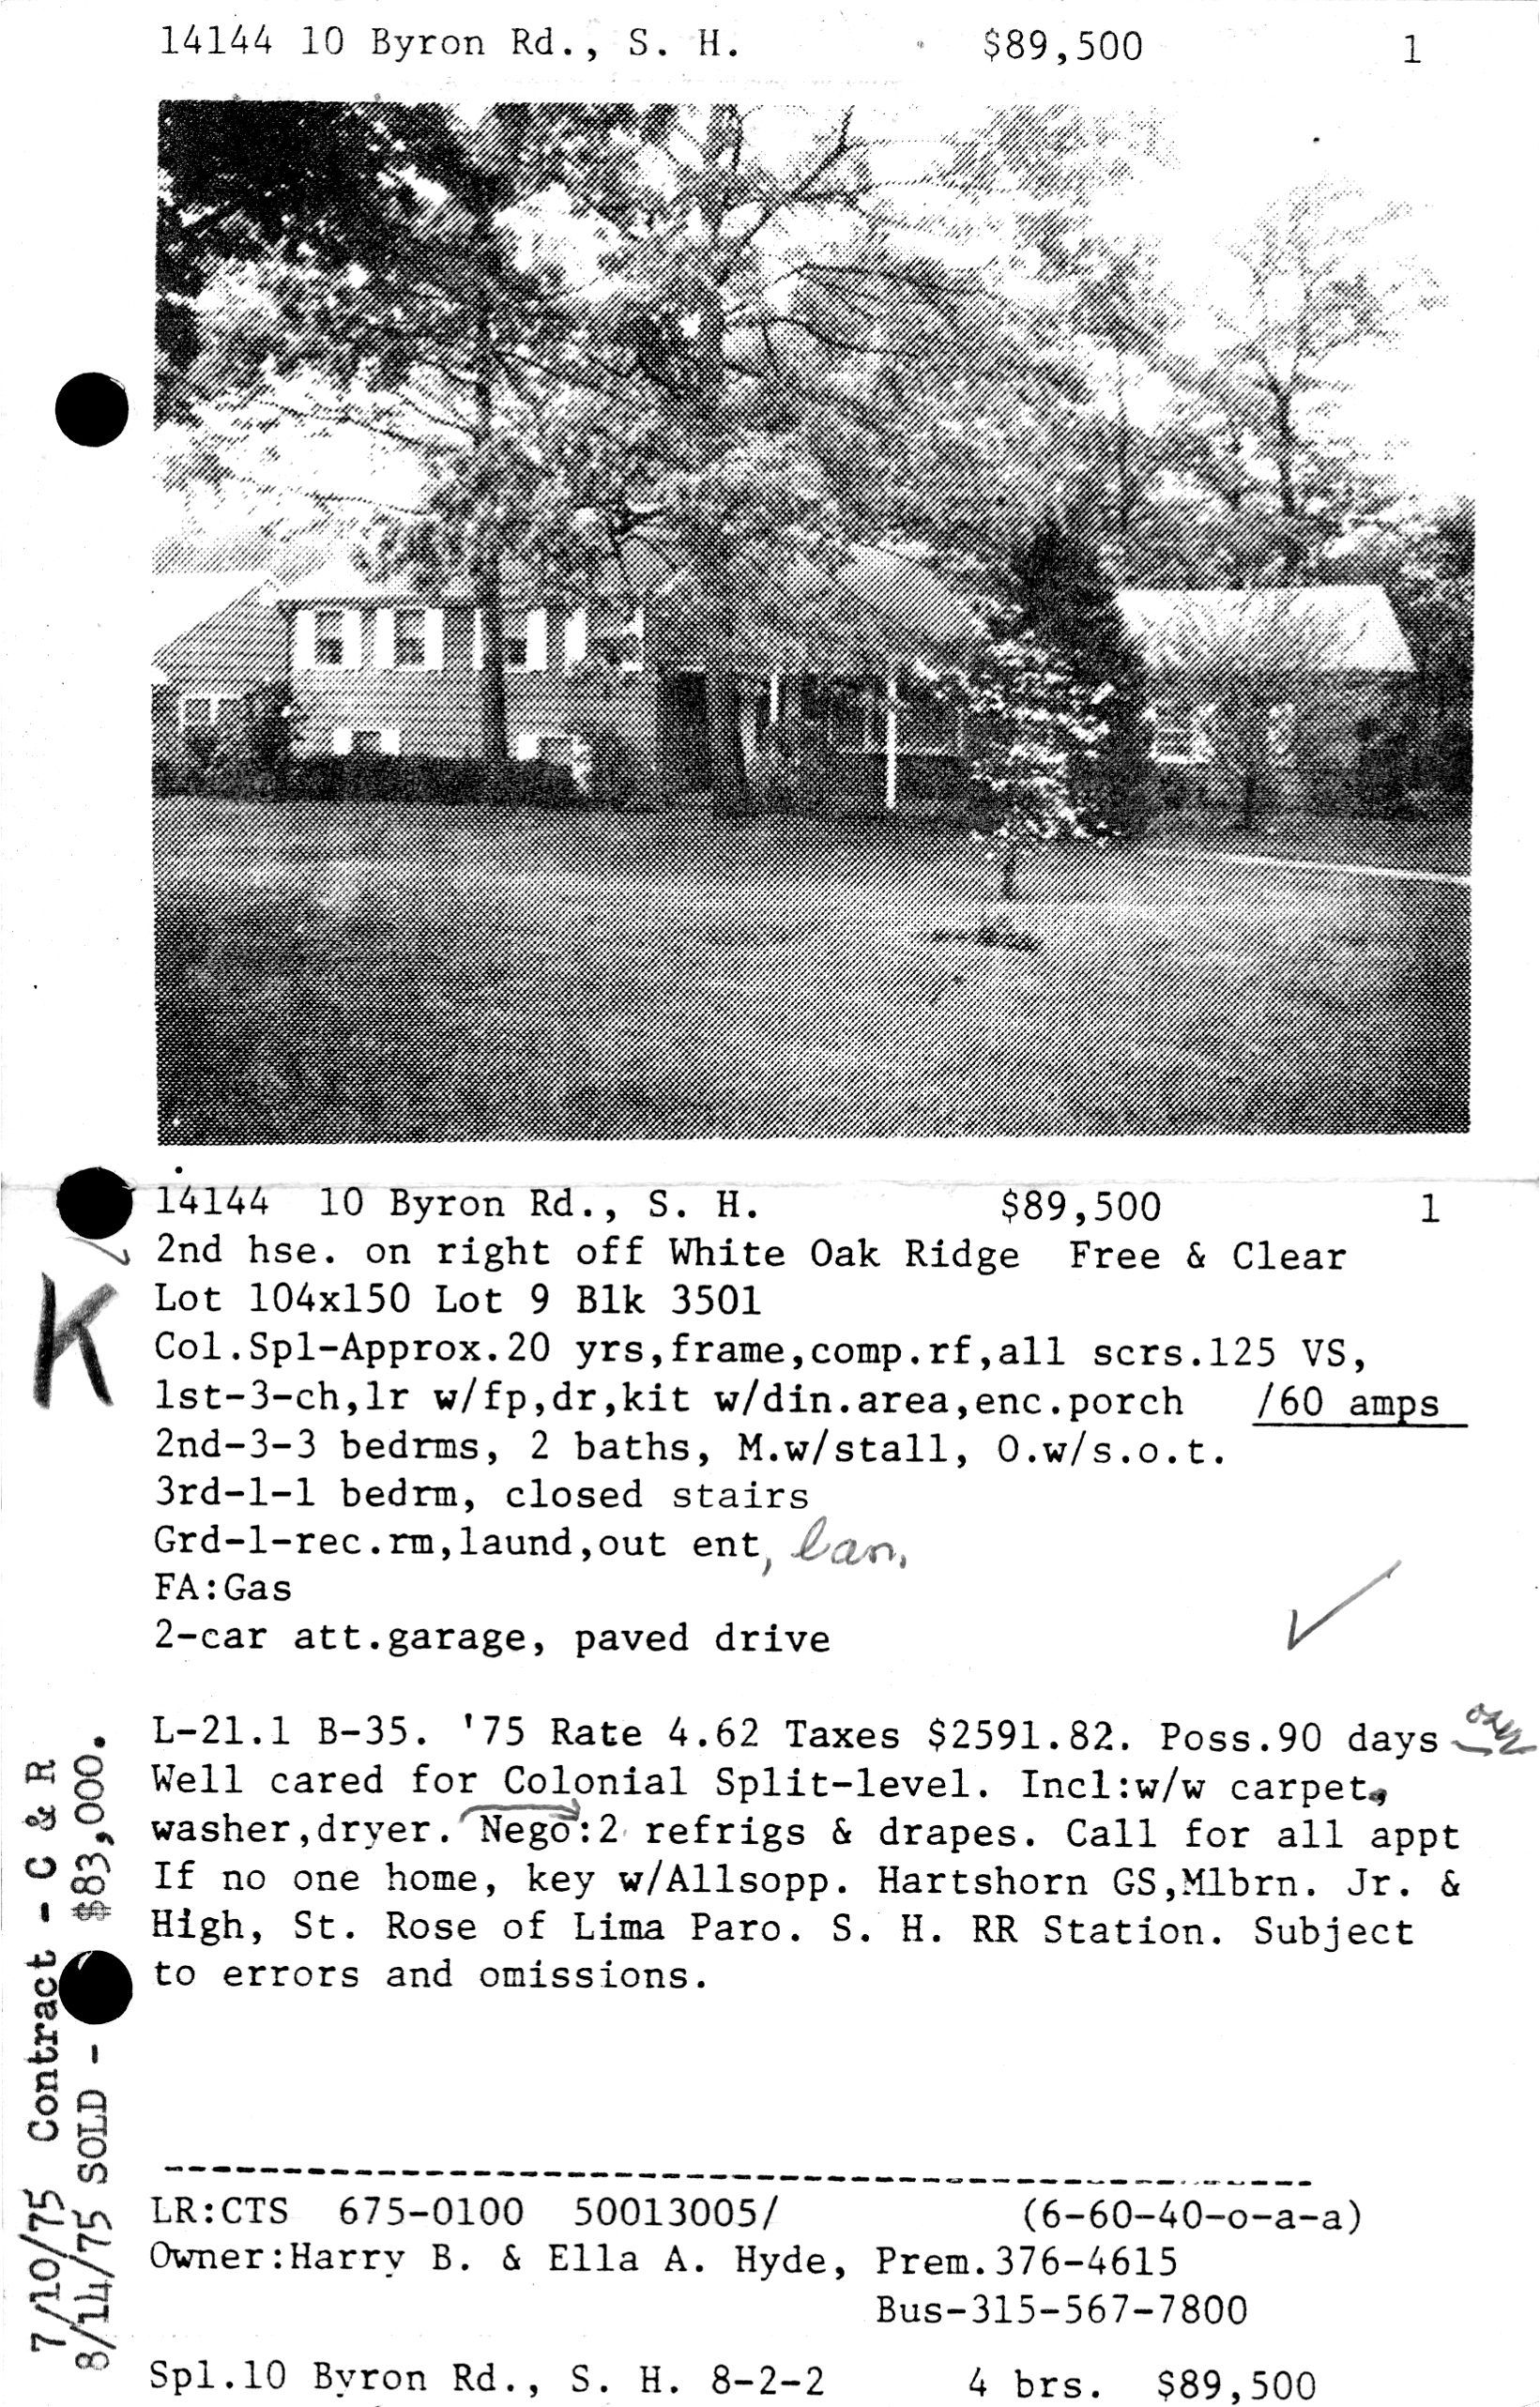 14144 10 Byron Rd., S. H. $89,500 1
14144 10 Byron Rd., S. H. $89,500 1
2nd hse. on right off White Oak Ridge Free & Clear
Lot 104x150 Lot 9 Blk 3501
Col.Spl-Approx.20 yrs,frame,comp.rf,all scrs.125 VS,
1st-3-ch,lr w/fp,dr,kit w/din.area,enc.porch /60 amps
2nd-3-3 bedrms, 2 baths, M.w/stall, O.w/s.o.t.
3rd-1-1 bedrm, closed stairs
Grd-1-rec.rm,laund,out ent, lav.
FA:Gas
2-car att.garage, paved drive
L-21.1 B-35. '75 Rate 4.62 Taxes $2591.82. Poss.90 days
Well cared for Colonial Split-level. Incl:w/w carpet,
washer,dryer. Nego:2 refrigs & drapes. Call for all appt
If no one home, key w/Allsopp. Hartshorn GS,Mlbrn. Jr. &
High, St. Rose of Lima Paro. S. H. RR Station. Subject
to errors and omissions.
LR:CTS 675-0100 50013005/ (6-60-40-o-a-a)
Owner:Harry B. & Ella A. Hyde, Prem.376-4615
Bus-315-567-7800
Spl.10 Byron Rd., S. H. 8-2-2 4 brs. $89,500
K
7/10/75 Contract - C & R
8/14/75 SOLD - $83,000.